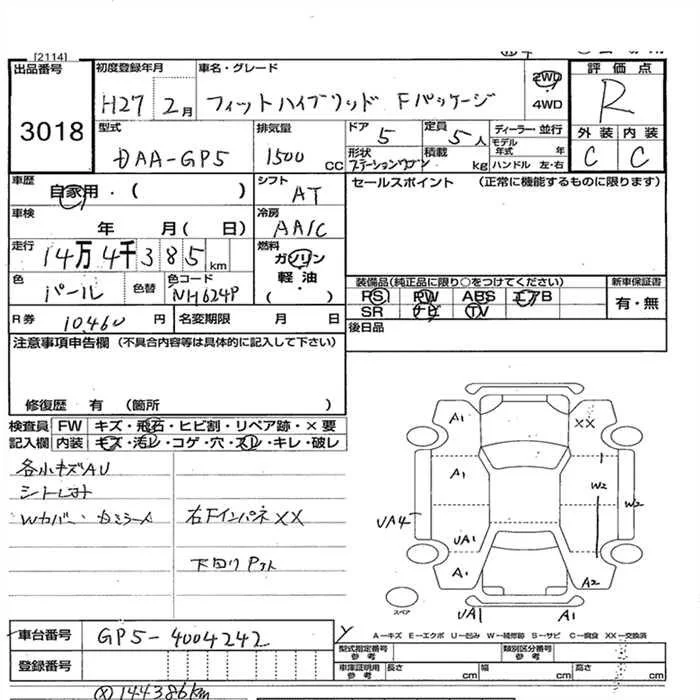 [2114]
出品番号 初度登録年月 車名・グレード 評価点
3018
H27 2月 フィットハイブリッド Fパッケージ 2WD 4WD R
型式 排気量 ドア 定員 ディーラー・並行 外装 内装
DAA-GP5 1500 CC 5 5人 モデル年式 年 C C
形状 ステーションワゴン 積載 kg ハンドル 左・右
車歴 自家用・( ) シフト AT セールスポイント (正常に機能するものに限ります)
車検 年 月( 日) 冷房 AA/C
走行 14万4千385km 燃料 ガソリン 軽油 ( ・ )
色 パール 色替 色コード NH624P
装備品(純正品に限り○をつけてください) 新車保証書
PS PW ABS エアB 有・無
SR ナビ TV
R券 10,460円 名変期限 月 日 後日品
注意事項申告欄 (不具合内容等は具体的に記入して下さい)
修復歴 有 (箇所 )
検査員 FW キズ・飛石・ヒビ割・リペア跡・×要
記入欄 内装 キズ・汚レ・コゲ・穴・スレ・キレ・破レ
各小キズAU
Wカバー 右Fインパネ XX
下回り
A1 XX
A1 W2 W2
UA4 UA1
A1 A2
スペア UA1 A1
A-キズ E-エクボ U-凹み W-補修跡 S-サビ C-腐食 XX-交換済
車台番号 GP5-4004242
型式指定番号 参考 類別区分番号 参考
登録番号 車庫証明用 参考 長さ cm 幅 cm 高さ cm
144386km